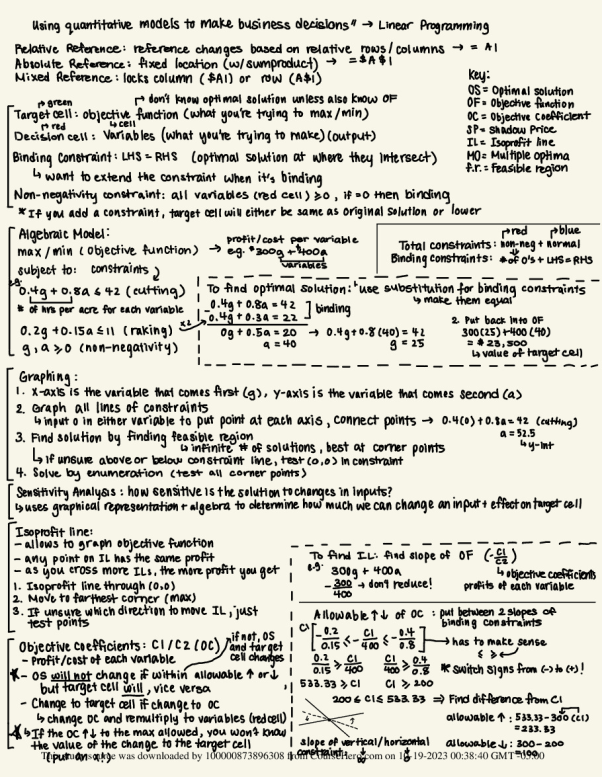 Using quantitative models to make business decisions" → Linear Programming
Relative Reference: reference changes based on relative rows/columns → = A1
Absolute Reference: fixed location (w/sumproduct) → =$A$1
Mixed Reference: locks column ($A1) or row (A$1)
Key:
OS = Optimal solution
OF = Objective function
OC = Objective Coefficient
SP = Shadow Price
IL = Isoprofit line
MO = Multiple optima
f.r. = Feasible region
↱ green
↱ don't know optimal solution unless also know OF
Target cell: objective function (what you're trying to max/min)
↱ red
↳ cell
Decision cell: variables (what you're trying to make) (output)
Binding Constraint: LHS = RHS (optimal solution at where they intersect)
↳ want to extend the constraint when it's binding
Non-negativity constraint: all variables (red cell) ≥ 0, if = 0 then binding
* If you add a constraint, target cell will either be same as original solution or lower
Algebraic Model:
max/min (objective function) → profit/cost per variable
e.g. $300g + $400a
variables
subject to: constraints
e.g.
0.4g + 0.8a ≤ 42 (cutting)
# of hrs per acre for each variable
0.2g + 0.15a ≤ 11 (raking) ×2
g, a ≥ 0 (non-negativity)
↱ red ↱ blue
Total constraints: non-neg + normal
Binding constraints: # of 0's + LHS = RHS
To find optimal solution: use substitution for binding constraints
↳ make them equal
0.4g + 0.8a = 42
0.4g + 0.3a = 22
binding
0g + 0.5a = 20 → 0.4g + 0.8(40) = 42
a = 40
g = 25
2. Put back into OF
300(25) + 400(40)
= $23,500
↳ value of target cell
Graphing:
1. X-axis is the variable that comes first (g), y-axis is the variable that comes second (a)
2. Graph all lines of constraints
↳ input 0 in either variable to put point at each axis, connect points → 0.4(0) + 0.8a = 42 (cutting)
a = 52.5
↳ y-int
3. Find solution by finding feasible region
↳ infinite # of solutions, best at corner points
↳ if unsure above or below constraint line, test (0,0) in constraint
4. Solve by enumeration (test all corner points)
Sensitivity Analysis: how sensitive is the solution to changes in inputs?
↳ uses graphical representation + algebra to determine how much we can change an input + effect on target cell
Isoprofit line:
- allows to graph objective function
- any point on IL has the same profit
- as you cross more ILs, the more profit you get
1. Isoprofit line through (0,0)
2. Move to farthest corner (max)
3. If unsure which direction to move IL, just
test points
To find IL: find slope of OF (-C1/C2)
e.g. 300g + 400a
↳ objective coefficients
profits of each variable
-300/400 → don't reduce!
Objective Coefficients: C1/C2 (OC)
if not, OS
and target
cell changes
- Profit/cost of each variable
* - OS will not change if within allowable ↑ or ↓
but target cell will, vice versa
- Change to target cell if change to OC
↳ change OC and remultiply to variables (red cell)
* ↳ If the OC ↑↓ to the max allowed, you won't know
the value of the change to the target cell
Allowable ↑↓ of OC: put between 2 slopes of
binding constraints
C1 [-0.2/0.15 ≤ -C1/400 ≤ -0.4/0.8] → has to make sense
≤ ≥
0.2/0.15 ≥ C1/400 C1/400 ≥ 0.4/0.8 * Switch Signs from (-) to (+)!
533.33 ≥ C1 C1 ≥ 200
200 ≤ C1 ≤ 533.33 ⇒ Find difference from C1
allowable ↑: 533.33 - 300 (C1)
= 233.33
allowable ↓: 300 - 200
slope of vertical/horizontal
constraint:
downloaded by 100000873896308 from CourseHero.com on 10-19-2023 00:38:40 GMT -05:00